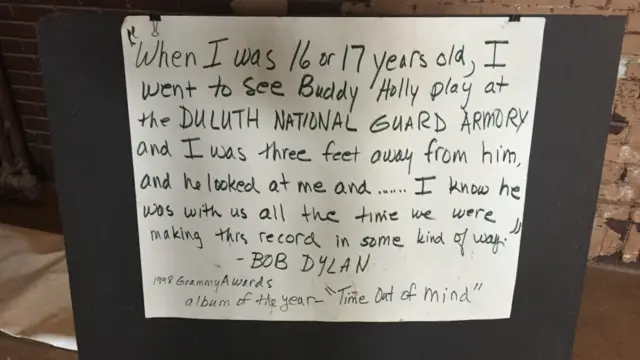 "When I was 16 or 17 years old, I
went to see Buddy Holly play at
the DULUTH NATIONAL GUARD ARMORY
and I was three feet away from him,
and he looked at me and...... I know he
was with us all the time we were
making this record in some kind of way."
- BOB DYLAN
1998 Grammy Awards
album of the year- "Time Out of Mind"